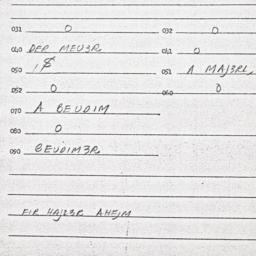 031 0 032 0
040 DER MEUER 041 0
050 1$ 051 A MAJERL
052 0 060 0
070 A BEUDIM
080 0
090 BEUDIMER
FIR HAJZER AHEJM